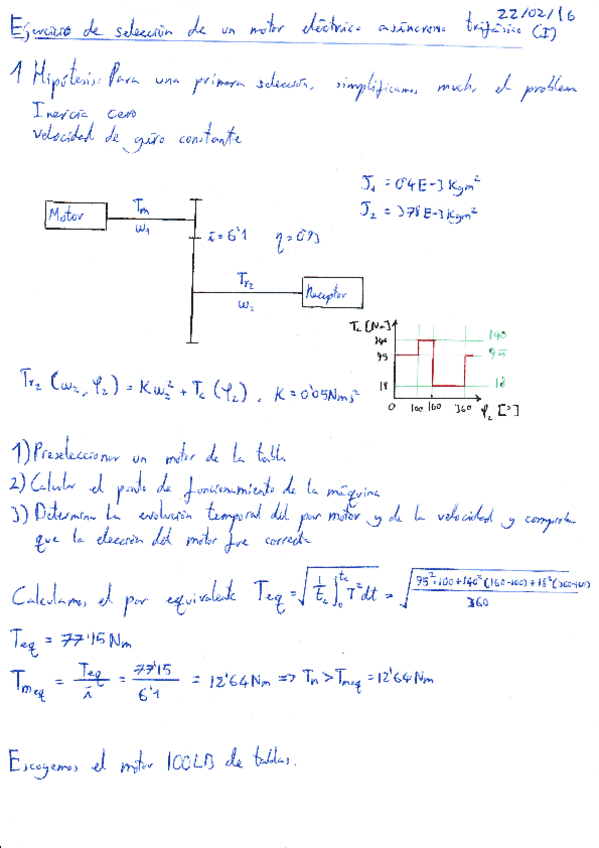 22/02/16
Ejercicio de selección de un motor eléctrico asíncrono trifásico (I)
1 Hipótesis: Para una primera selección, simplificamos mucho el problema
Inercia cero
Velocidad de giro constante
J1 = 0'4E-3 Kgm²
J2 = 378E-3 Kgm²
Motor Tm
ω1
i = 6'1 η = 0'93
Tr2
ω2
Receptor
Tc [Nm]
140 140
95 95
18 18
0 100 160 360 φ2 [°]
Tr2 (ω2, φ2) = Kω2² + Tc (φ2), K = 0'05Nms²
1) Preseleccionar un motor de la tabla
2) Calcular el punto de funcionamiento de la máquina
3) Determinar la evolución temporal del par motor y de la velocidad y comprobar
que la elección del motor fue correcta
Calculamos el par equivalente Teq = √(1/tc ∫₀^tc T² dt) = √((95²·100+140²(160-100)+18²(360-160))/360)
Teq = 77'15 Nm
Tmeq = Teq/i = 77'15/6'1 = 12'64 Nm => Tn > Tmeq = 12'64 Nm
Escogemos el motor 100LB de tablas.